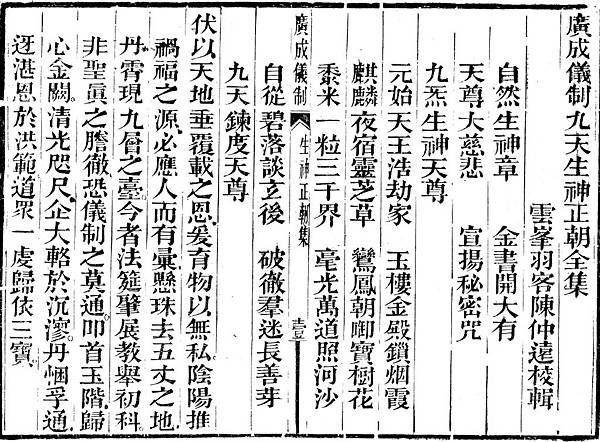 廣成儀制九天生神正朝全集
雲峯羽客陳仲遠校輯
自然生神章　金書開大有
天尊大慈悲　宣揚秘密咒
九炁生神天尊
元始天王浩劫家　玉樓金殿鎖烟霞
麒麟夜宿靈芝草　鸞鳳朝啣寶樹花
黍米一粒三千界　毫光萬道照河沙
廣成儀制　生神正朝集　壹
自從碧落談玄後　破徹羣迷長善芽
九天鍊度天尊
伏以天地垂覆載之恩爰育物以無私陰陽推
禍福之源必應人而有彙懸珠去五丈之地
丹霄現九層之臺今者法筵肇展教舉初科
非聖眞之膽徹恐儀制之莫通叩首玉階歸
心金闕清光咫尺企大輅於沉寥丹悃孚通
迓湛恩於洪範道眾一虔歸依三寶